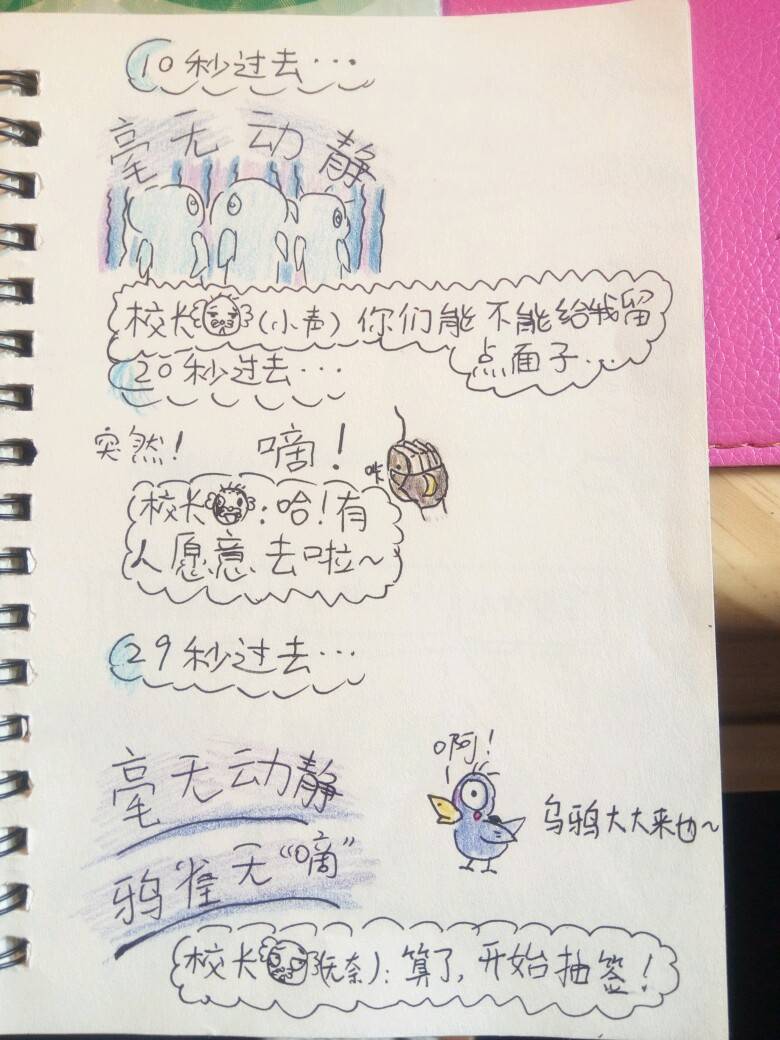 10秒过去…
毫无动静
校长(小声)你们能不能给我留
点面子...
20秒过去…
突然!
嘀!
咔
校长:哈!有
人愿意去啦~
29秒过去…
毫无动静
鸦雀无“嘀”
啊!
乌鸦大大来也~
校长(无奈):算了,开始抽签!